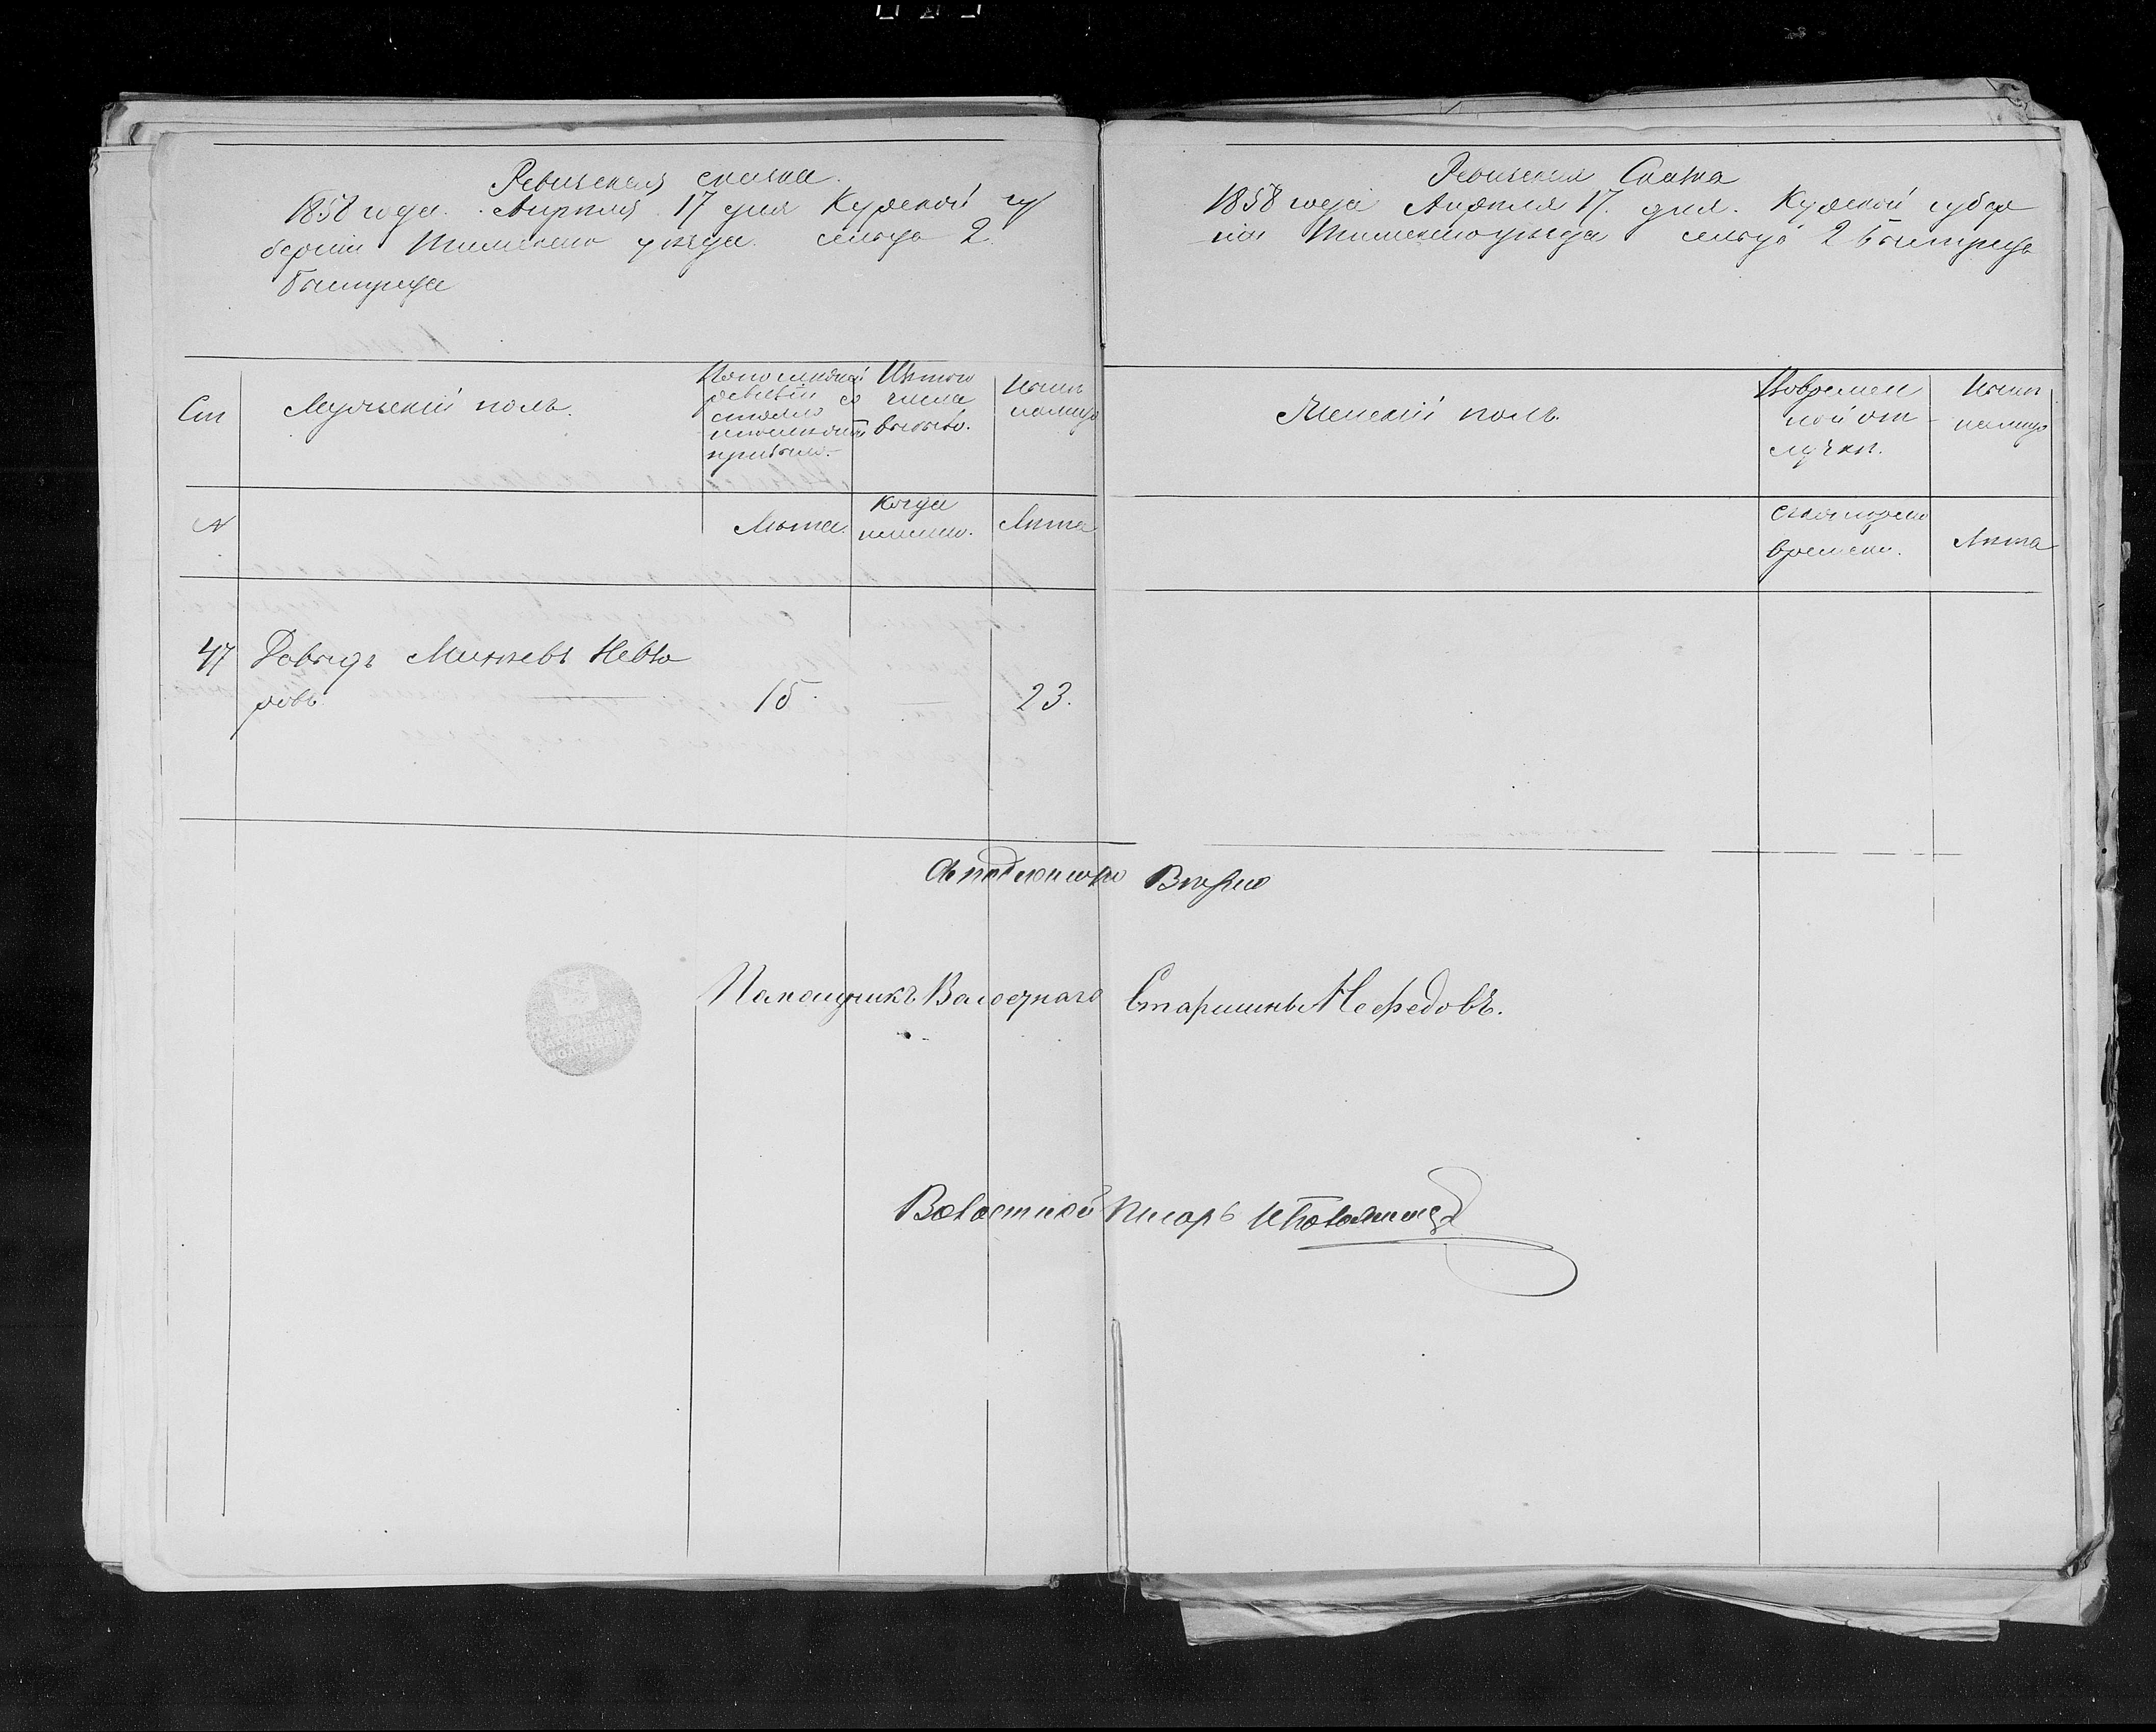 Ревизская сказка
1858 года Апреля 17 дня Курской гу
берніи Тимскаго уезда сельца 2
Быстреца
Ст
Мужескій полъ.
По последней
ревизіи со
стояло
и после той
прибыло.
Изъ того
числа
выбыло.
Ныне
налицо
N
Лета.
Когда
именно.
Лета
47 Довыдъ Минаевъ Невзо
ровъ 15. 23.
Ревизская Сказка
1858 года Апреля 17. дня. Курской губер
ніи Тимскаго уезда сельца 2 Быстрецъ
Женскій полъ.
Во времен
ной от
лучке.
Ныне
налицо
Съ котораго
времени.
Лета
Съ подлиннымъ Верно
Памощникъ Валостнаго Старшины Нефедовъ.
Волостной Писарь